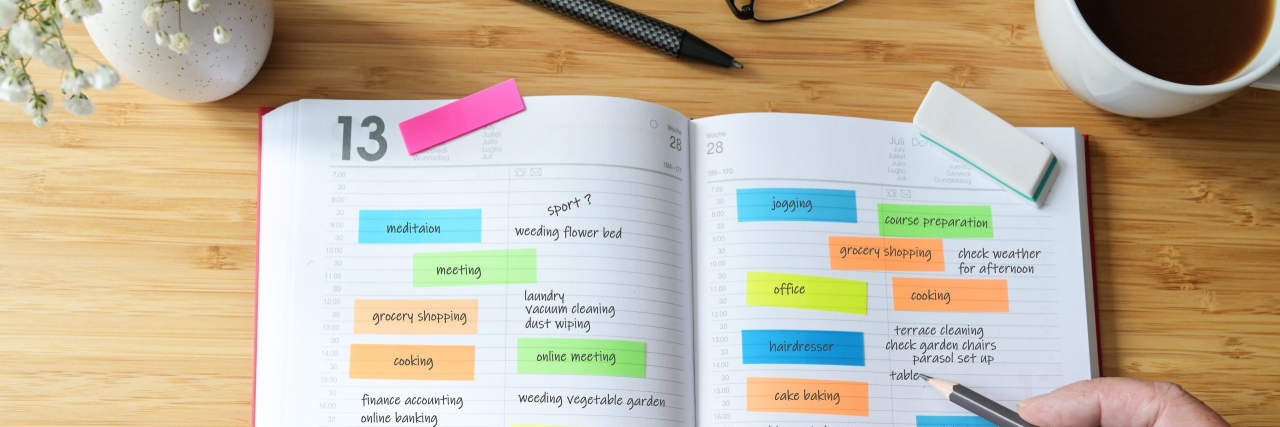 13
Woche
28
sport ?
meditaion
weeding flower bed
meeting
laundry
vacuum cleaning
dust wiping
grocery shopping
online meeting
cooking
finance accounting
online banking
weeding vegetable garden
Woche
28
Juli
jogging
course preparation
grocery shopping
check weather
for afternoon
office
cooking
terrace cleaning
check garden chairs
parasol set up
table
hairdresser
cake baking